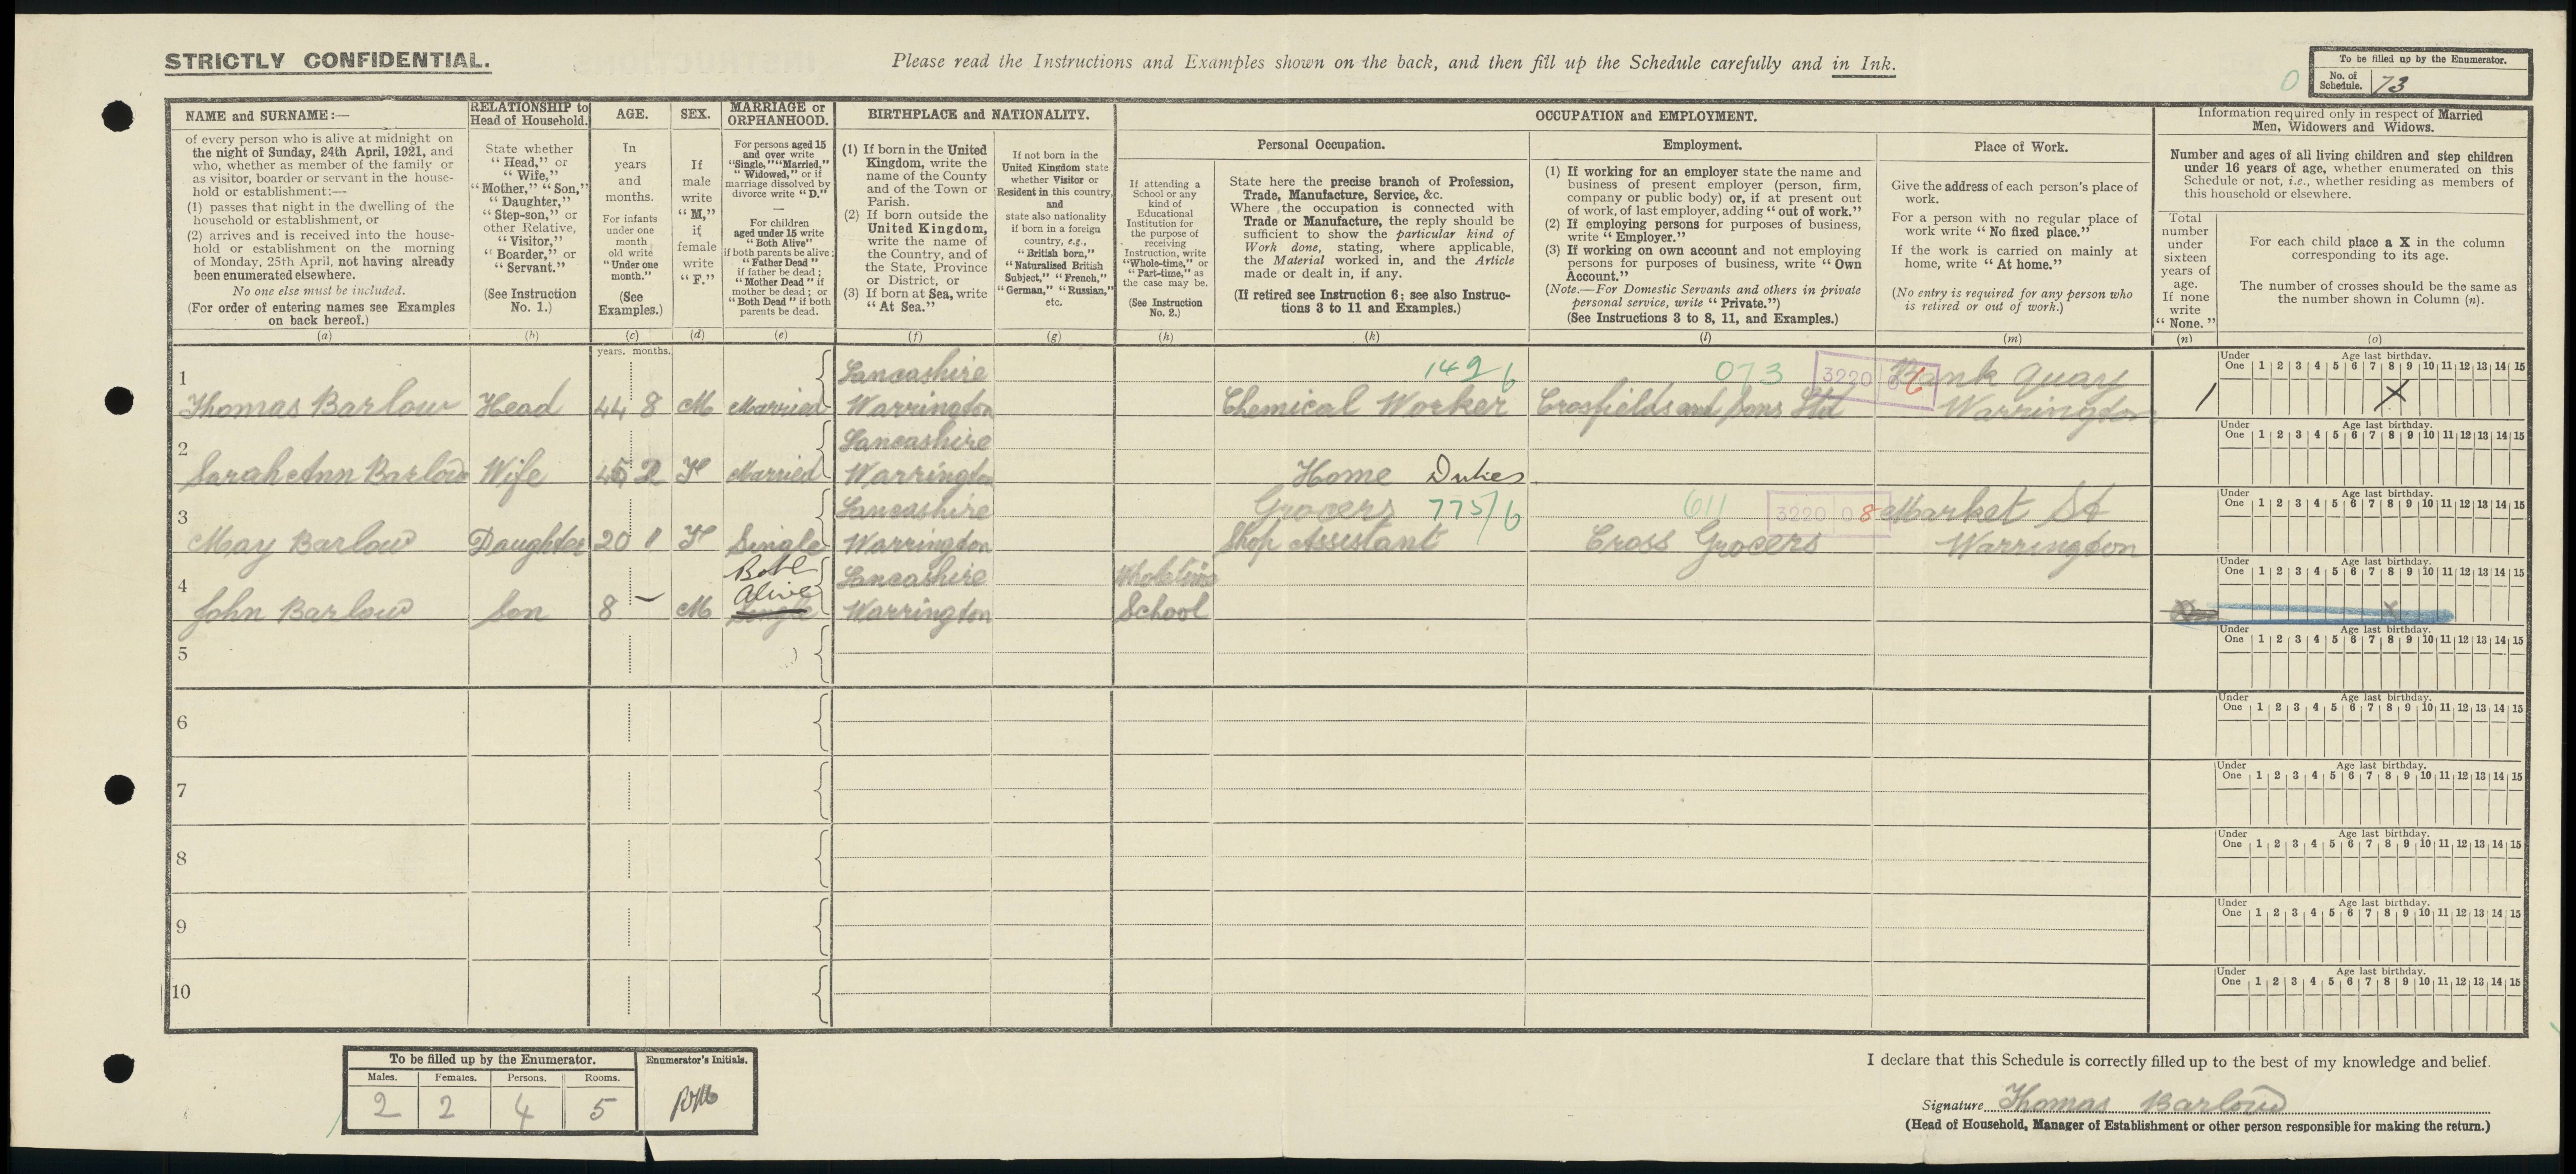 STRICTLY CONFIDENTIAL.
Please read the Instructions and Examples shown on the back, and then fill up the Schedule carefully and in Ink.
To be filled up by the Enumerator.
No. of Schedule. 73
0
NAME and SURNAME:—
of every person who is alive at midnight on
the night of Sunday, 24th April, 1921, and
who, whether as member of the family or
as visitor, boarder or servant in the house-
hold or establishment:—
(1) passes that night in the dwelling of the
household or establishment, or
(2) arrives and is received into the house-
hold or establishment on the morning
of Monday, 25th April, not having already
been enumerated elsewhere.
No one else must be included.
(For order of entering names see Examples
on back hereof.)
(a)
RELATIONSHIP to
Head of Household.
State whether
"Head," or
"Wife,"
"Mother," "Son,"
"Daughter,"
"Step-son," or
other Relative,
"Visitor,"
"Boarder," or
"Servant."
(See Instruction
No. 1.)
(b)
AGE.
In
years
and
months.
For infants
under one
month
old write
"Under one
month."
(See
Examples.)
(c)
SEX.
If
male
write
"M,"
if
female
write
"F."
(d)
MARRIAGE or
ORPHANHOOD.
For persons aged 15
and over write
"Single," "Married,"
"Widowed," or if
marriage dissolved by
divorce write "D."
—
For children
aged under 15 write
"Both Alive"
if both parents be alive;
"Father Dead"
if father be dead;
"Mother Dead" if
mother be dead; or
"Both Dead" if both
parents be dead.
(e)
BIRTHPLACE and NATIONALITY.
(1) If born in the United
Kingdom, write the
name of the County
and of the Town or
Parish.
(2) If born outside the
United Kingdom,
write the name of
the Country, and of
the State, Province
or District, or
(3) If born at Sea, write
"At Sea."
(f)
If not born in the
United Kingdom state
whether Visitor or
Resident in this country,
and
state also nationality
if born in a foreign
country, e.g.,
"British born,"
"Naturalised British
Subject," "French,"
"German," "Russian,"
etc.
(g)
OCCUPATION and EMPLOYMENT.
Personal Occupation.
If attending a
School or any
kind of
Educational
Institution for
the purpose of
receiving
Instruction, write
"Whole-time," or
"Part-time," as
the case may be.
(See Instruction
No. 2.)
(h)
State here the precise branch of Profession,
Trade, Manufacture, Service, &c.
Where the occupation is connected with
Trade or Manufacture, the reply should be
sufficient to show the particular kind of
Work done, stating, where applicable,
the Material worked in, and the Article
made or dealt in, if any.
(If retired see Instruction 6; see also Instruc-
tions 3 to 11 and Examples.)
(k)
Employment.
(1) If working for an employer state the name and
business of present employer (person, firm,
company or public body) or, if at present out
of work, of last employer, adding "out of work."
(2) If employing persons for purposes of business,
write "Employer."
(3) If working on own account and not employing
persons for purposes of business, write "Own
Account."
(Note.—For Domestic Servants and others in private
personal service, write "Private.")
(See Instructions 3 to 8, 11, and Examples.)
(l)
Place of Work.
Give the address of each person's place of
work.
For a person with no regular place of
work write "No fixed place."
If the work is carried on mainly at
home, write "At home."
(No entry is required for any person who
is retired or out of work.)
(m)
Information required only in respect of Married
Men, Widowers and Widows.
Number and ages of all living children and step children
under 16 years of age, whether enumerated on this
Schedule or not, i.e., whether residing as members of
this household or elsewhere.
Total
number
under
sixteen
years of
age.
If none
write
"None."
(n)
For each child place a X in the column
corresponding to its age.
The number of crosses should be the same as
the number shown in Column (n).
(o)
years. months.
1 Lancashire 1426 073 3220 06 Bank Quay
Under One Age last birthday. 1 2 3 4 5 6 7 8 9 10 11 12 13 14 15
Thomas Barlow Head 44 8 M Married Warrington Chemical Worker Crosfields and Sons Ltd Warrington 1 X
2 Lancashire
Under One Age last birthday. 1 2 3 4 5 6 7 8 9 10 11 12 13 14 15
Sarah Ann Barlow Wife 45 2 F Married Warrington Home Duties
3 Lancashire Grocers 775/6 611 3220 08 Market St
Under One Age last birthday. 1 2 3 4 5 6 7 8 9 10 11 12 13 14 15
May Barlow Daughter 20 1 F Single Warrington Shop Assistant Cross Grocers Warrington
4 Both Alive Lancashire Wholetime
Under One Age last birthday. 1 2 3 4 5 6 7 8 9 10 11 12 13 14 15
John Barlow Son 8 – M Single Warrington School X
5
Under One Age last birthday. 1 2 3 4 5 6 7 8 9 10 11 12 13 14 15
6
Under One Age last birthday. 1 2 3 4 5 6 7 8 9 10 11 12 13 14 15
7
Under One Age last birthday. 1 2 3 4 5 6 7 8 9 10 11 12 13 14 15
8
Under One Age last birthday. 1 2 3 4 5 6 7 8 9 10 11 12 13 14 15
9
Under One Age last birthday. 1 2 3 4 5 6 7 8 9 10 11 12 13 14 15
10
Under One Age last birthday. 1 2 3 4 5 6 7 8 9 10 11 12 13 14 15
To be filled up by the Enumerator.
Enumerator's Initials.
Males. Females. Persons. Rooms.
2 2 4 5
I declare that this Schedule is correctly filled up to the best of my knowledge and belief.
Signature Thomas Barlow
(Head of Household, Manager of Establishment or other person responsible for making the return.)